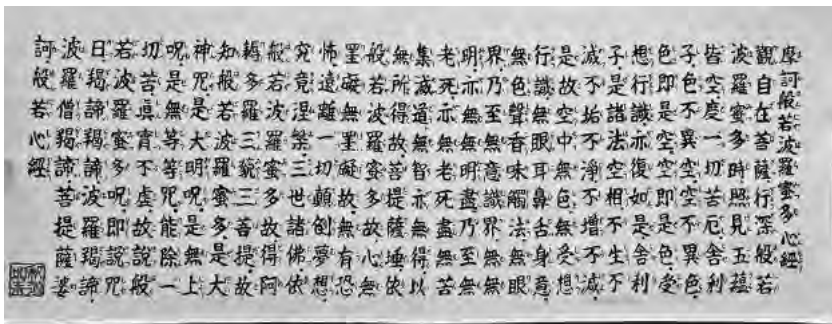 摩訶般若波羅蜜多心經
觀自在菩薩行深般若
波羅蜜多時照見五蘊
皆空度一切苦厄舍利
子色不異空空不異色
色即是空空即是色受
想行識亦復如是舍利
子是諸法空相不生不
滅不垢不淨不增不減
是故空中無色無受想
行識無眼耳鼻舌身意
無色聲香味觸法無眼
界乃至無意識界無無
明亦無無明盡乃至無
老死亦無老死盡無苦
集滅道無智亦無得以
無所得故菩提薩埵依
般若波羅蜜多故心無
罣礙無罣礙故無有恐
怖遠離一切顛倒夢想
究竟涅槃三世諸佛依
般若波羅蜜多故得阿
耨多羅三藐三菩提故
知般若波羅蜜多是大
神咒是大明呪是無上
呪是無等等咒能除一
切苦眞實不虛故說般
若波羅蜜多呪即說咒
曰羯諦羯諦波羅羯諦
波羅僧羯諦菩提薩婆
訶般若心經